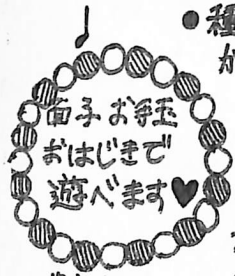 ●種
が
面子お手玉
おはじきで
遊べます♥